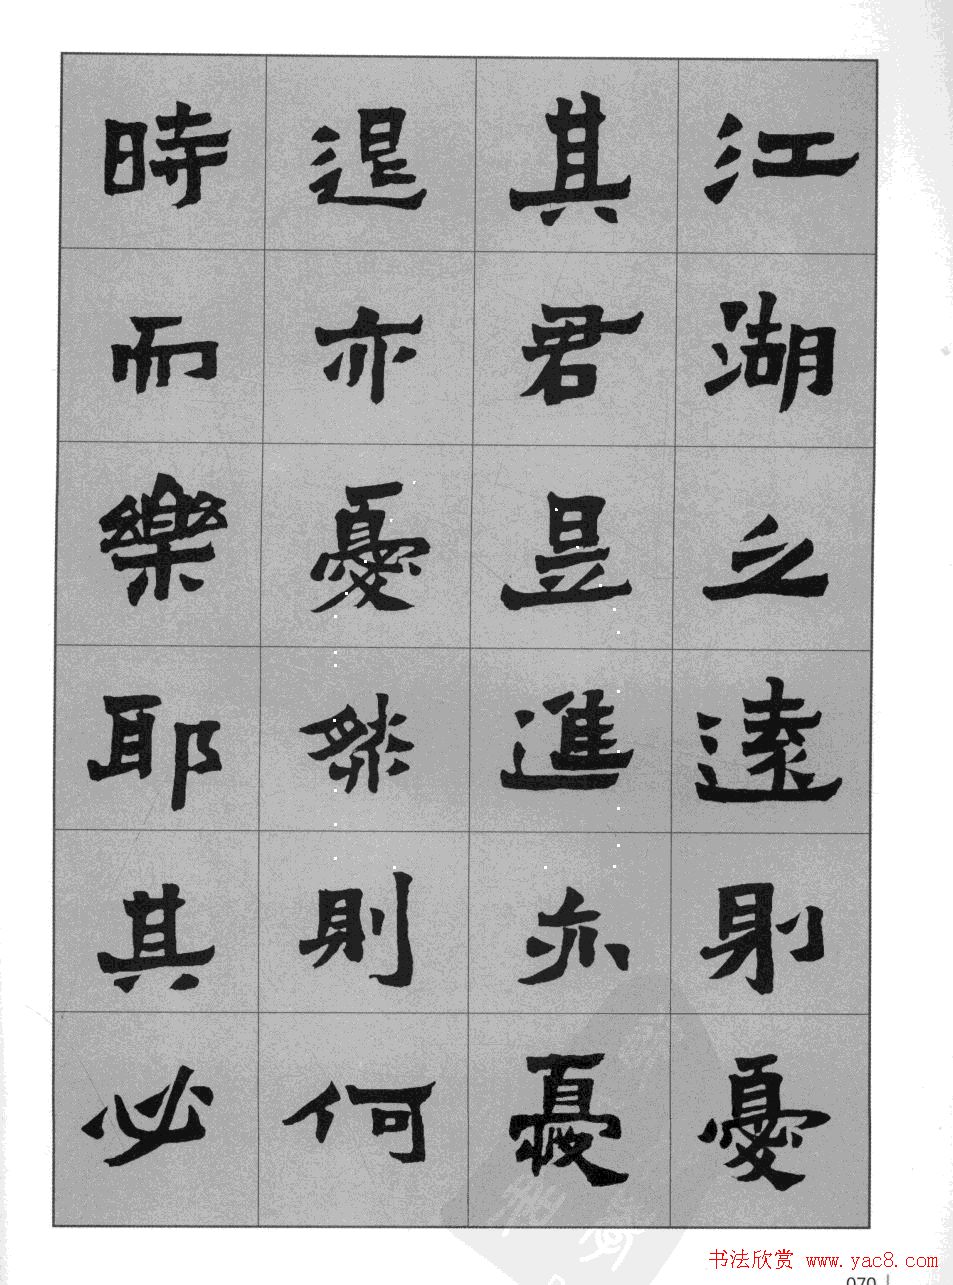 江湖之遠則憂
其君是進亦憂
退亦憂然則何
時而樂耶其必
书法欣赏 www.yac8.com